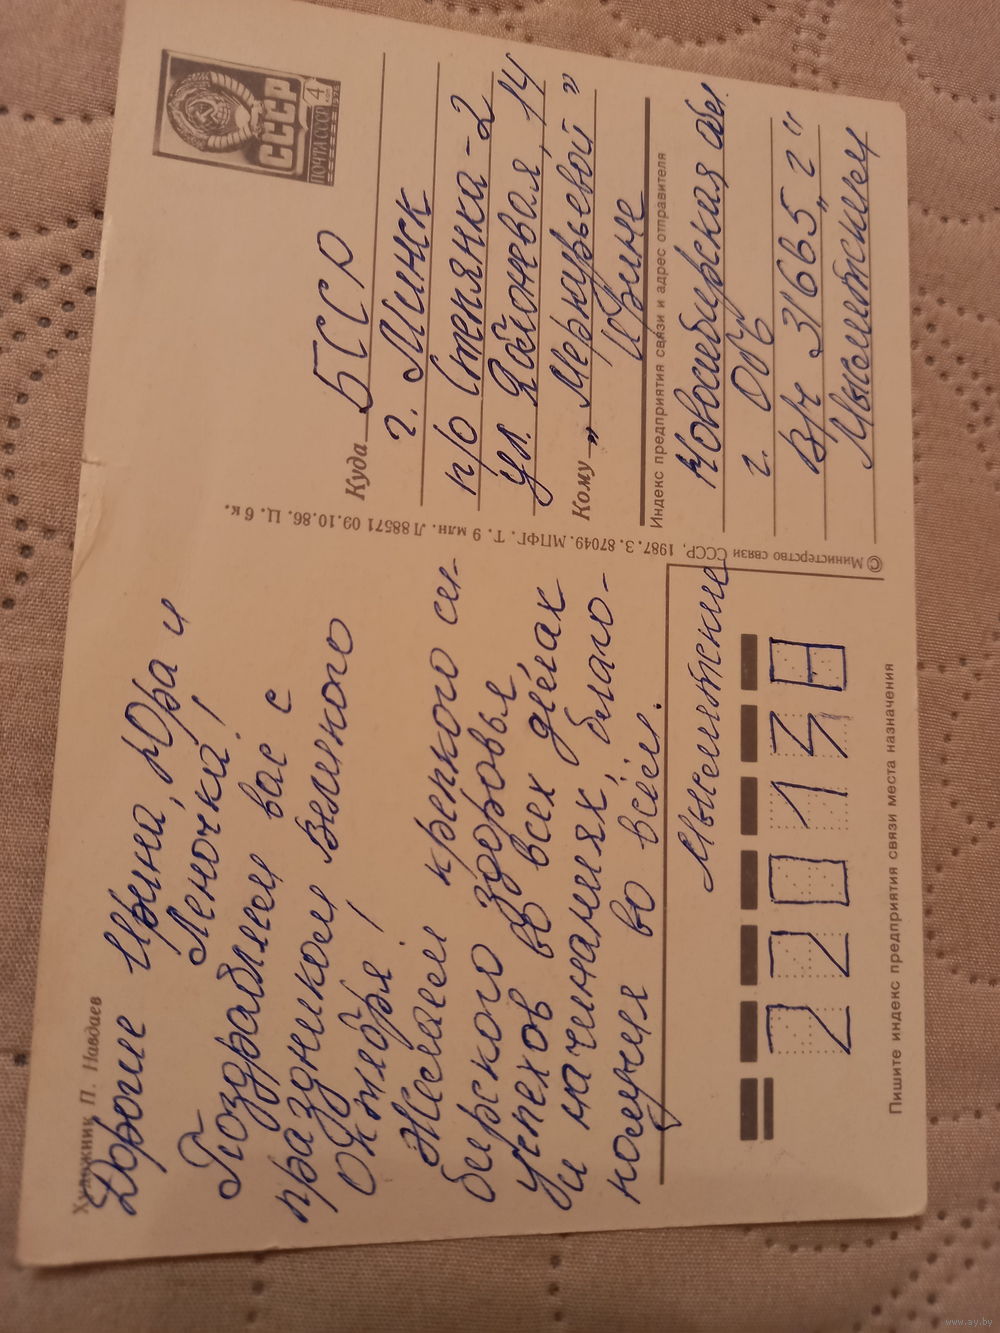 Художник П. Навдаев
Дорогие Ирина, Юра и
Леночка!
Поздравляем вас с
праздником Великого
Октября!
Желаем крепкого си-
бирского здоровья
успехов во всех делах
и начинаниях, благо-
получия во всём.
Мысливские
220138
Пишите индекс предприятия связи места назначения
© Министерство связи СССР, 1987. З. 87049. МПФГ. Т. 9 млн. Л 88571 09.10.86. Ц. 6 к.
СССР
ПОЧТА СССР
4
Куда БССР
г. Минск
п/о Степянка-2
ул. Яблоневая, 14
Кому „Меркурьевой"
Ирине
Индекс предприятия связи и адрес отправителя
Новосибирская обл.
г. Обь
в/ч 31665 „г"
www.ay.by